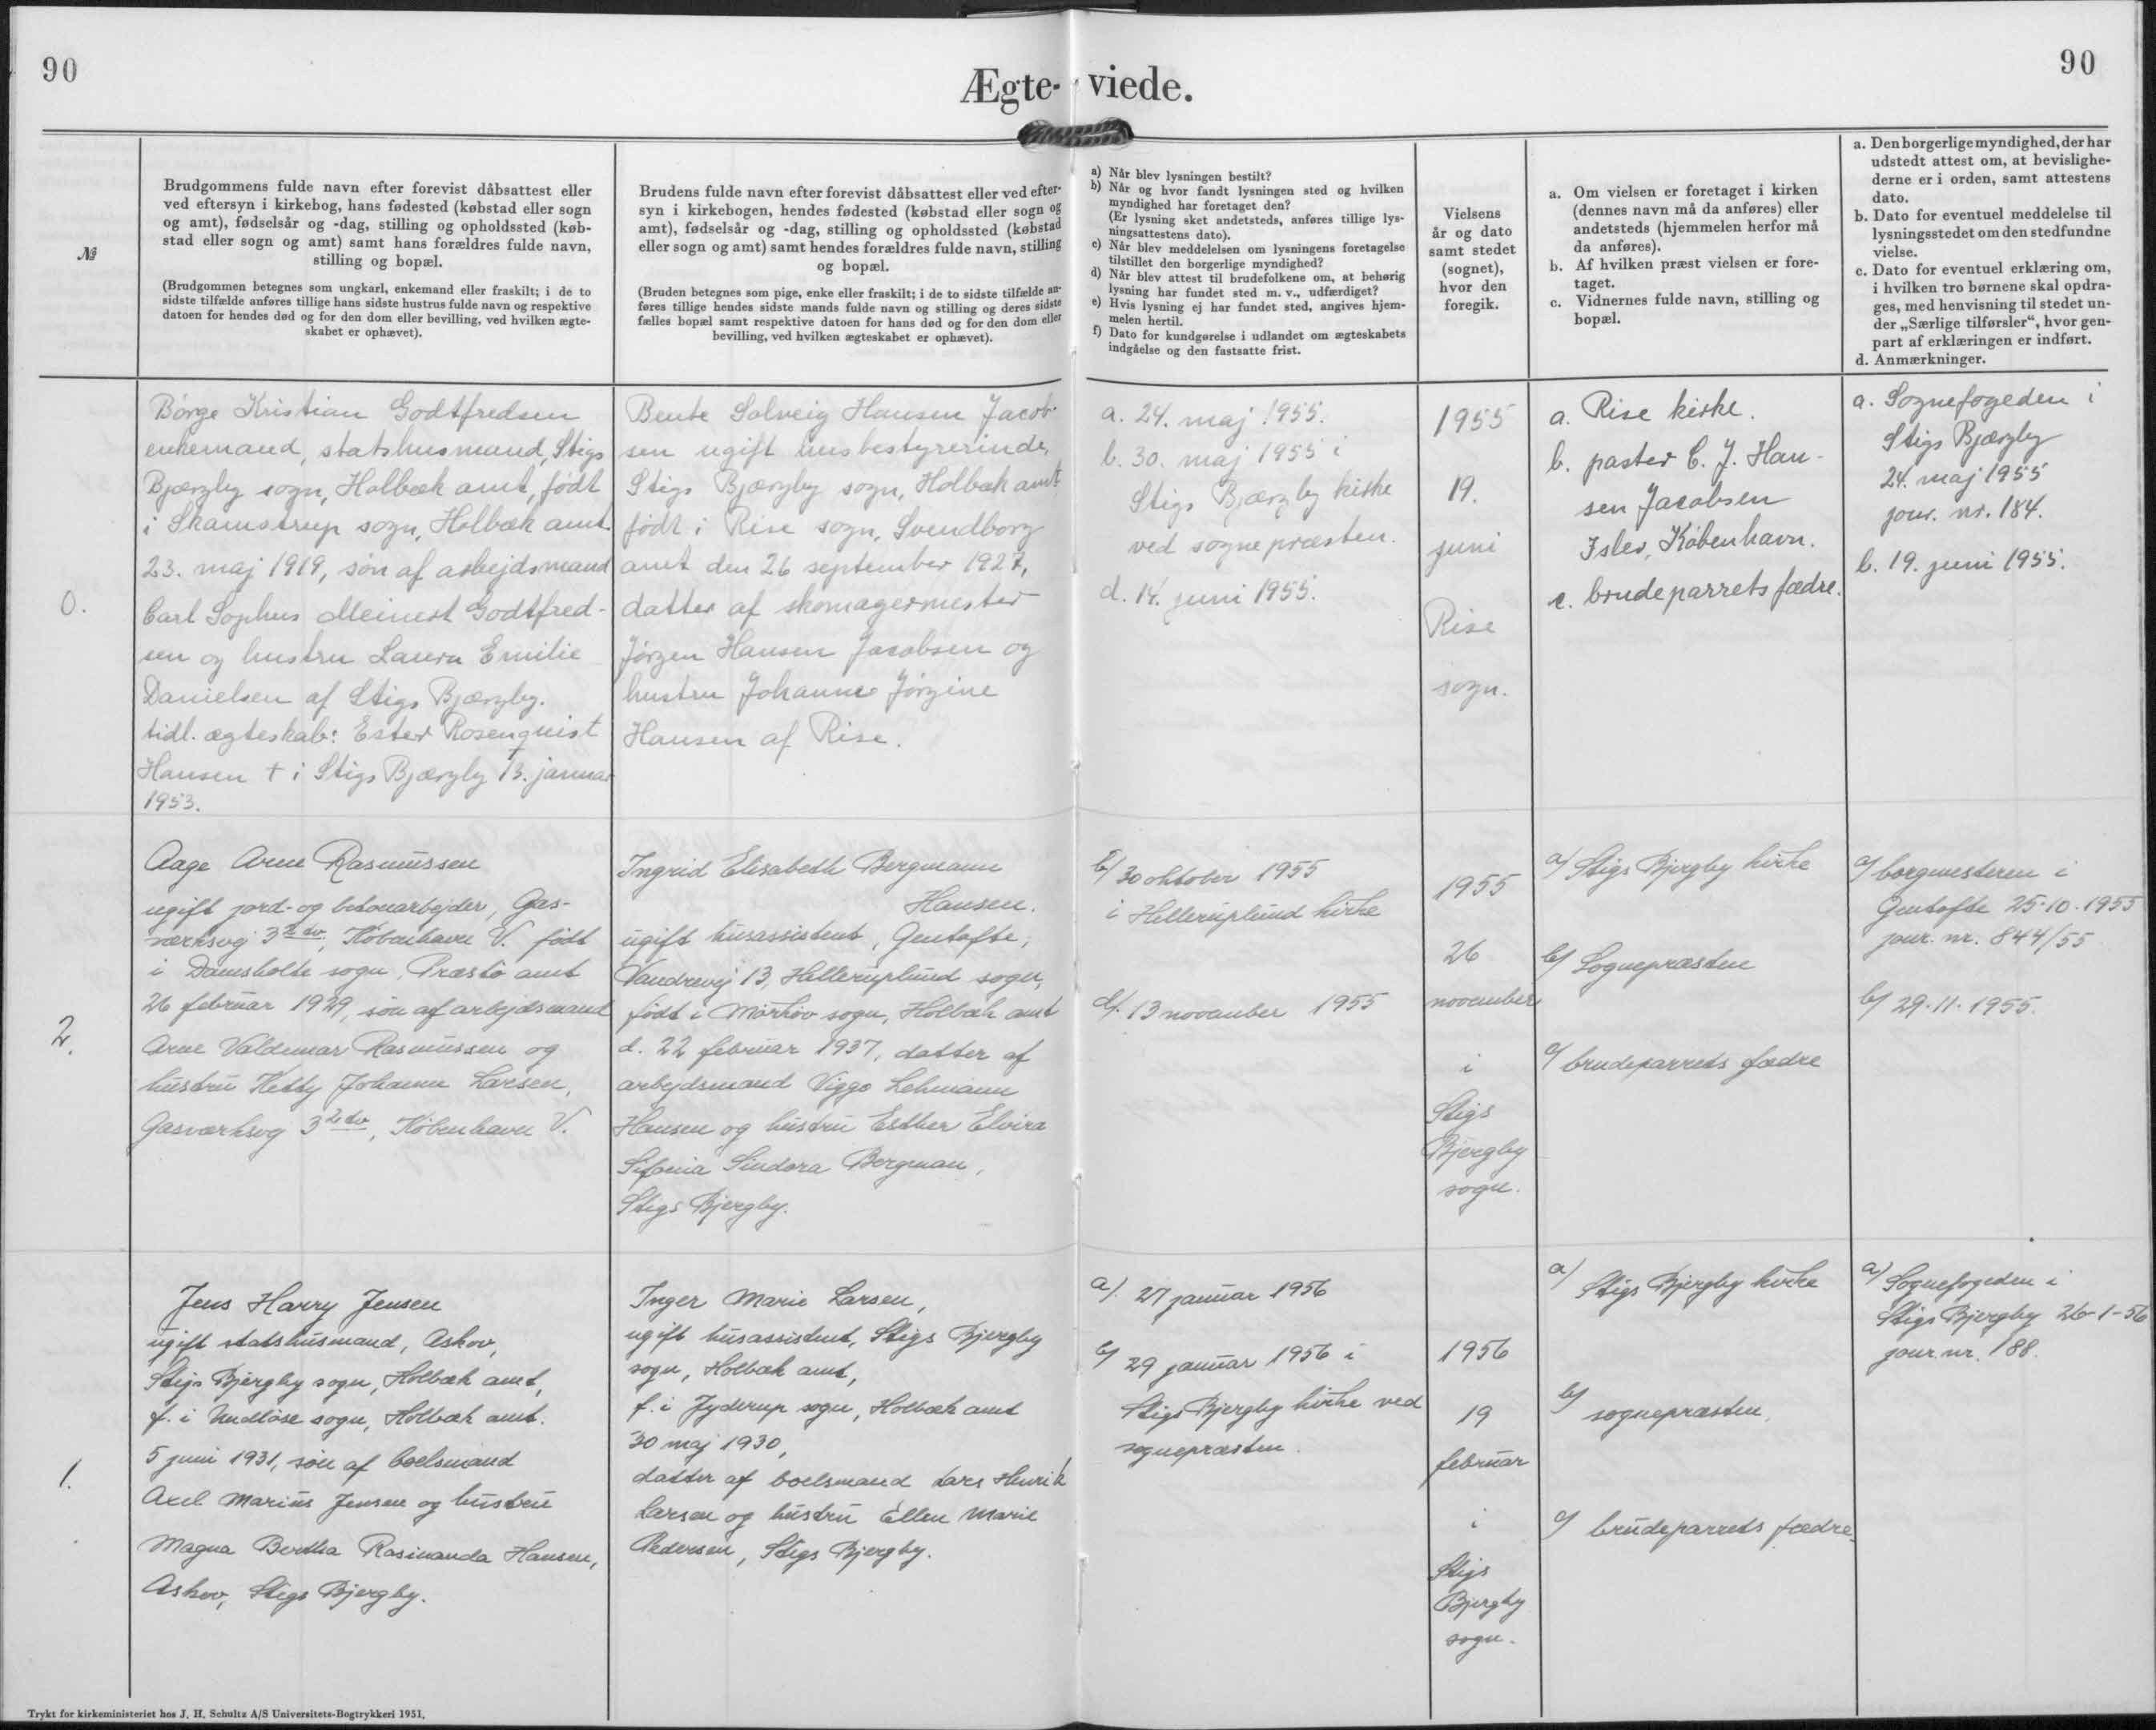 90
90
Ægte- viede.
№
Brudgommens fulde navn efter forevist dåbsattest eller
ved eftersyn i kirkebog, hans fødested (købstad eller sogn
og amt), fødselsår og -dag, stilling og opholdssted (køb-
stad eller sogn og amt) samt hans forældres fulde navn,
stilling og bopæl.
(Brudgommen betegnes som ungkarl, enkemand eller fraskilt; i de to
sidste tilfælde anføres tillige hans sidste hustrus fulde navn og respektive
datoen for hendes død og for den dom eller bevilling, ved hvilken ægte-
skabet er ophævet).
Brudens fulde navn efter forevist dåbsattest eller ved efter-
syn i kirkebogen, hendes fødested (købstad eller sogn og
amt), fødselsår og -dag, stilling og opholdssted (købstad
eller sogn og amt) samt hendes forældres fulde navn, stilling
og bopæl.
(Bruden betegnes som pige, enke eller fraskilt; i de to sidste tilfælde an-
føres tillige hendes sidste mands fulde navn og stilling og deres sidste
fælles bopæl samt respektive datoen for hans død og for den dom eller
bevilling, ved hvilken ægteskabet er ophævet).
a) Når blev lysningen bestilt?
b) Når og hvor fandt lysningen sted og hvilken
myndighed har foretaget den?
(Er lysning sket andetsteds, anføres tillige lys-
ningsattestens dato).
c) Når blev meddelelsen om lysningens foretagelse
tilstillet den borgerlige myndighed?
d) Når blev attest til brudefolkene om, at behørig
lysning har fundet sted m. v., udfærdiget?
e) Hvis lysning ej har fundet sted, angives hjem-
melen hertil.
f) Dato for kundgørelse i udlandet om ægteskabets
indgåelse og den fastsatte frist.
Vielsens
år og dato
samt stedet
(sognet),
hvor den
foregik.
a. Om vielsen er foretaget i kirken
(dennes navn må da anføres) eller
andetsteds (hjemmelen herfor må
da anføres).
b. Af hvilken præst vielsen er fore-
taget.
c. Vidnernes fulde navn, stilling og
bopæl.
a. Den borgerlige myndighed, der har
udstedt attest om, at bevislighe-
derne er i orden, samt attestens
dato.
b. Dato for eventuel meddelelse til
lysningsstedet om den stedfundne
vielse.
c. Dato for eventuel erklæring om,
i hvilken tro børnene skal opdra-
ges, med henvisning til stedet un-
der „Særlige tilførsler“, hvor gen-
part af erklæringen er indført.
d. Anmærkninger.
0.
Börge Kristian Godtfredsen
enkemand, statshusmand, Stigs
Bjærgby sogn, Holbæk amt, født
i Skamstrup sogn, Holbæk amt.
23. maj 1919, søn af arbejdsmand
Carl Sophus Meinert Godtfred-
sen og hustru Laura Emilie
Danielsen af Stigs Bjærgby.
tidl. ægteskab: Ester Rosenquist
Hansen † i Stigs Bjærgby 13. januar
1953.
Bente Solveig Hansen Jacob-
sen ugift husbestyrerinde,
Stigs Bjærgby sogn, Holbæk amt
født i Rise sogn, Svendborg
amt den 26 september 1927,
datter af skomagermester
Jørgen Hansen Jacobsen og
hustru Johanne Jørgine
Hansen af Rise.
a. 24. maj 1955.
b. 30. maj 1955 i
Stigs Bjærgby kirke
ved sognepræsten.
d. 14. juni 1955.
1955
19.
juni
Rise
sogn.
a. Rise kirke.
b. pastor C. J. Han-
sen Jacobsen
Islev, København.
c. brudeparrets fædre.
a. Sognefogeden i
Stigs Bjærgby
24. maj 1955
jour. nr. 184.
b. 19. juni 1955.
2.
Aage Arne Rasmussen
ugift jord- og betonarbejder, Gas-
værksvej 3 2 tv, København V. født
i Damsholte sogn, Præstö amt
26 februar 1929, søn af arbejdsmand
Arne Valdemar Rasmussen og
hustru Ketty Johanne Larsen,
Gasværksvej 3 2 tv, København V.
Ingrid Elisabeth Bergmann
Hansen.
ugift husassistent, Gentofte,
Vandrevej 13, Helleruplund sogn,
født i Mörkøv sogn, Holbæk amt
d. 22 februar 1937, datter af
arbejdsmand Viggo Lehmann
Hansen og hustru Esther Elvira
Sindora Bergman,
Stigs Bjergby.
b/ 30 oktober 1955
i Hellerüplund kirke
d/. 13 november 1955
1955
26
november
i
Stigs
Bjergby
sogn.
a/ Stigs Bjergby kirke
b/ Sognepræsten
c/ brudeparrets fædre
a/ borgmesteren i
Gentofte 25-10-1955
jour. nr. 844/55
b/ 29.11.1955.
1.
Jens Harry Jensen
ugift statshusmand, Askov,
Stigs Bjergby sogn, Holbæk amt,
f. i Undløse sogn, Holbæk amt.
5 juni 1931, søn af boelsmand
Axel Marius Jensen og hustru
Magna Bertha Rasmanda Hansen,
Askov, Stigs Bjergby.
Inger Marie Larsen,
ugift husassistent, Stigs Bjergby
sogn, Holbæk amt,
f. i Jyderup sogn, Holbæk amt
30 maj 1930,
datter af boelsmand Lars Henrik
Larsen og hustru Ellen Marie
Pedersen, Stigs Bjergby.
a/. 27 januar 1956
b/ 29 januar 1956 i
Stigs Bjergby kirke ved
sognepræsten.
1956
19
februar
i
Stigs
Bjergby
sogn.
a/ Stigs Bjergby kirke
b/ sognepræsten,
c/ brudeparrets fædre.
a/ Sognefogeden i
Stigs Bjergby 26-1-56
jour. nr. 188.
Trykt for kirkeministeriet hos J. H. Schultz A/S Universitets-Bogtrykkeri 1951.